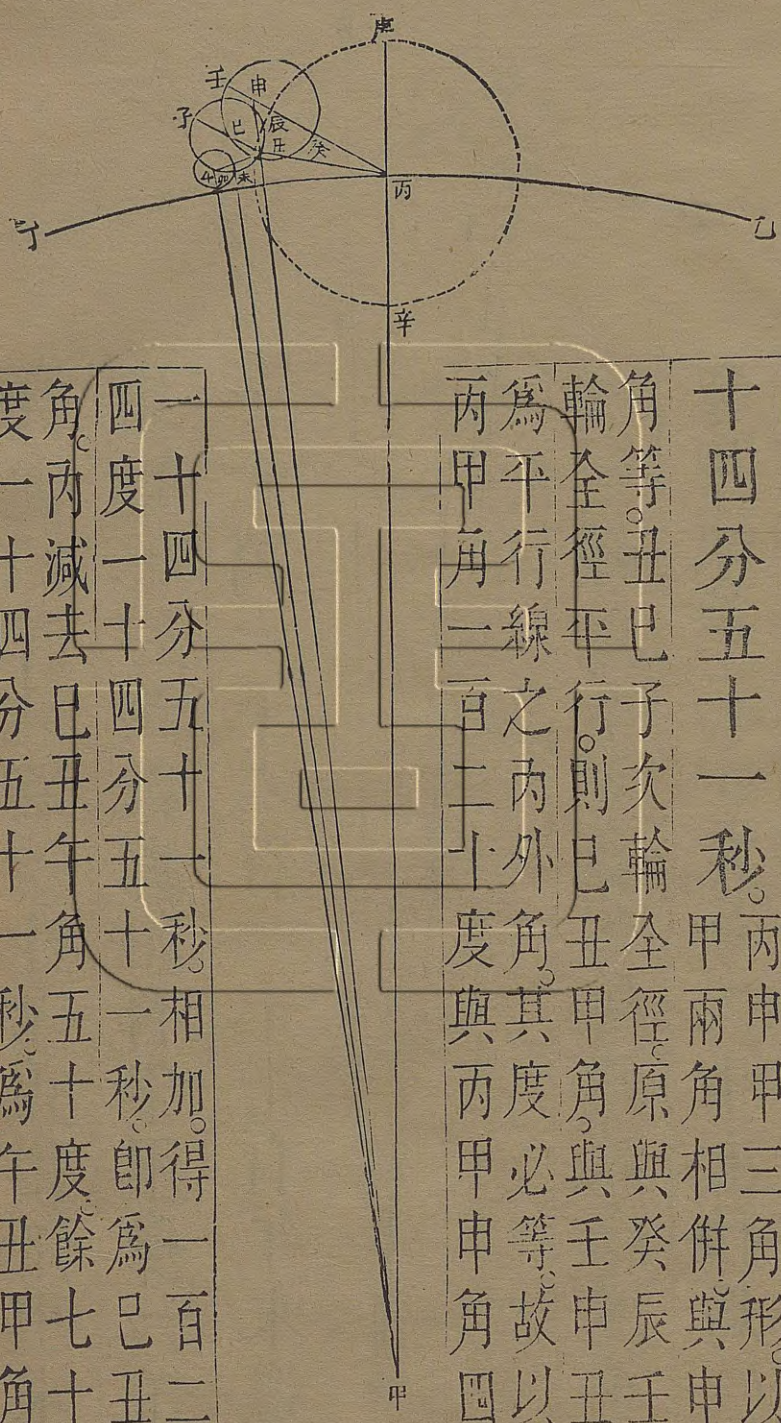 庚
壬
申
子
巳
辰
丑
癸
午
卯
未
丙
丁
乙
辛
甲
十四分五十一秒。
丙申甲三角形。以
甲兩角相併。與申
角等。丑巳子次輪全徑。原與癸辰壬
輪全徑平行。則巳丑甲角。與壬申丑
爲平行線之內外角。其度必等。故以
丙甲角一百二十度與丙甲申角四
一十四分五十一秒。相加。得一百二
四度一十四分五十一秒。卽爲巳丑
角。內減去巳丑午角五十度。餘七十
度一十四分五十一秒。爲午丑甲角